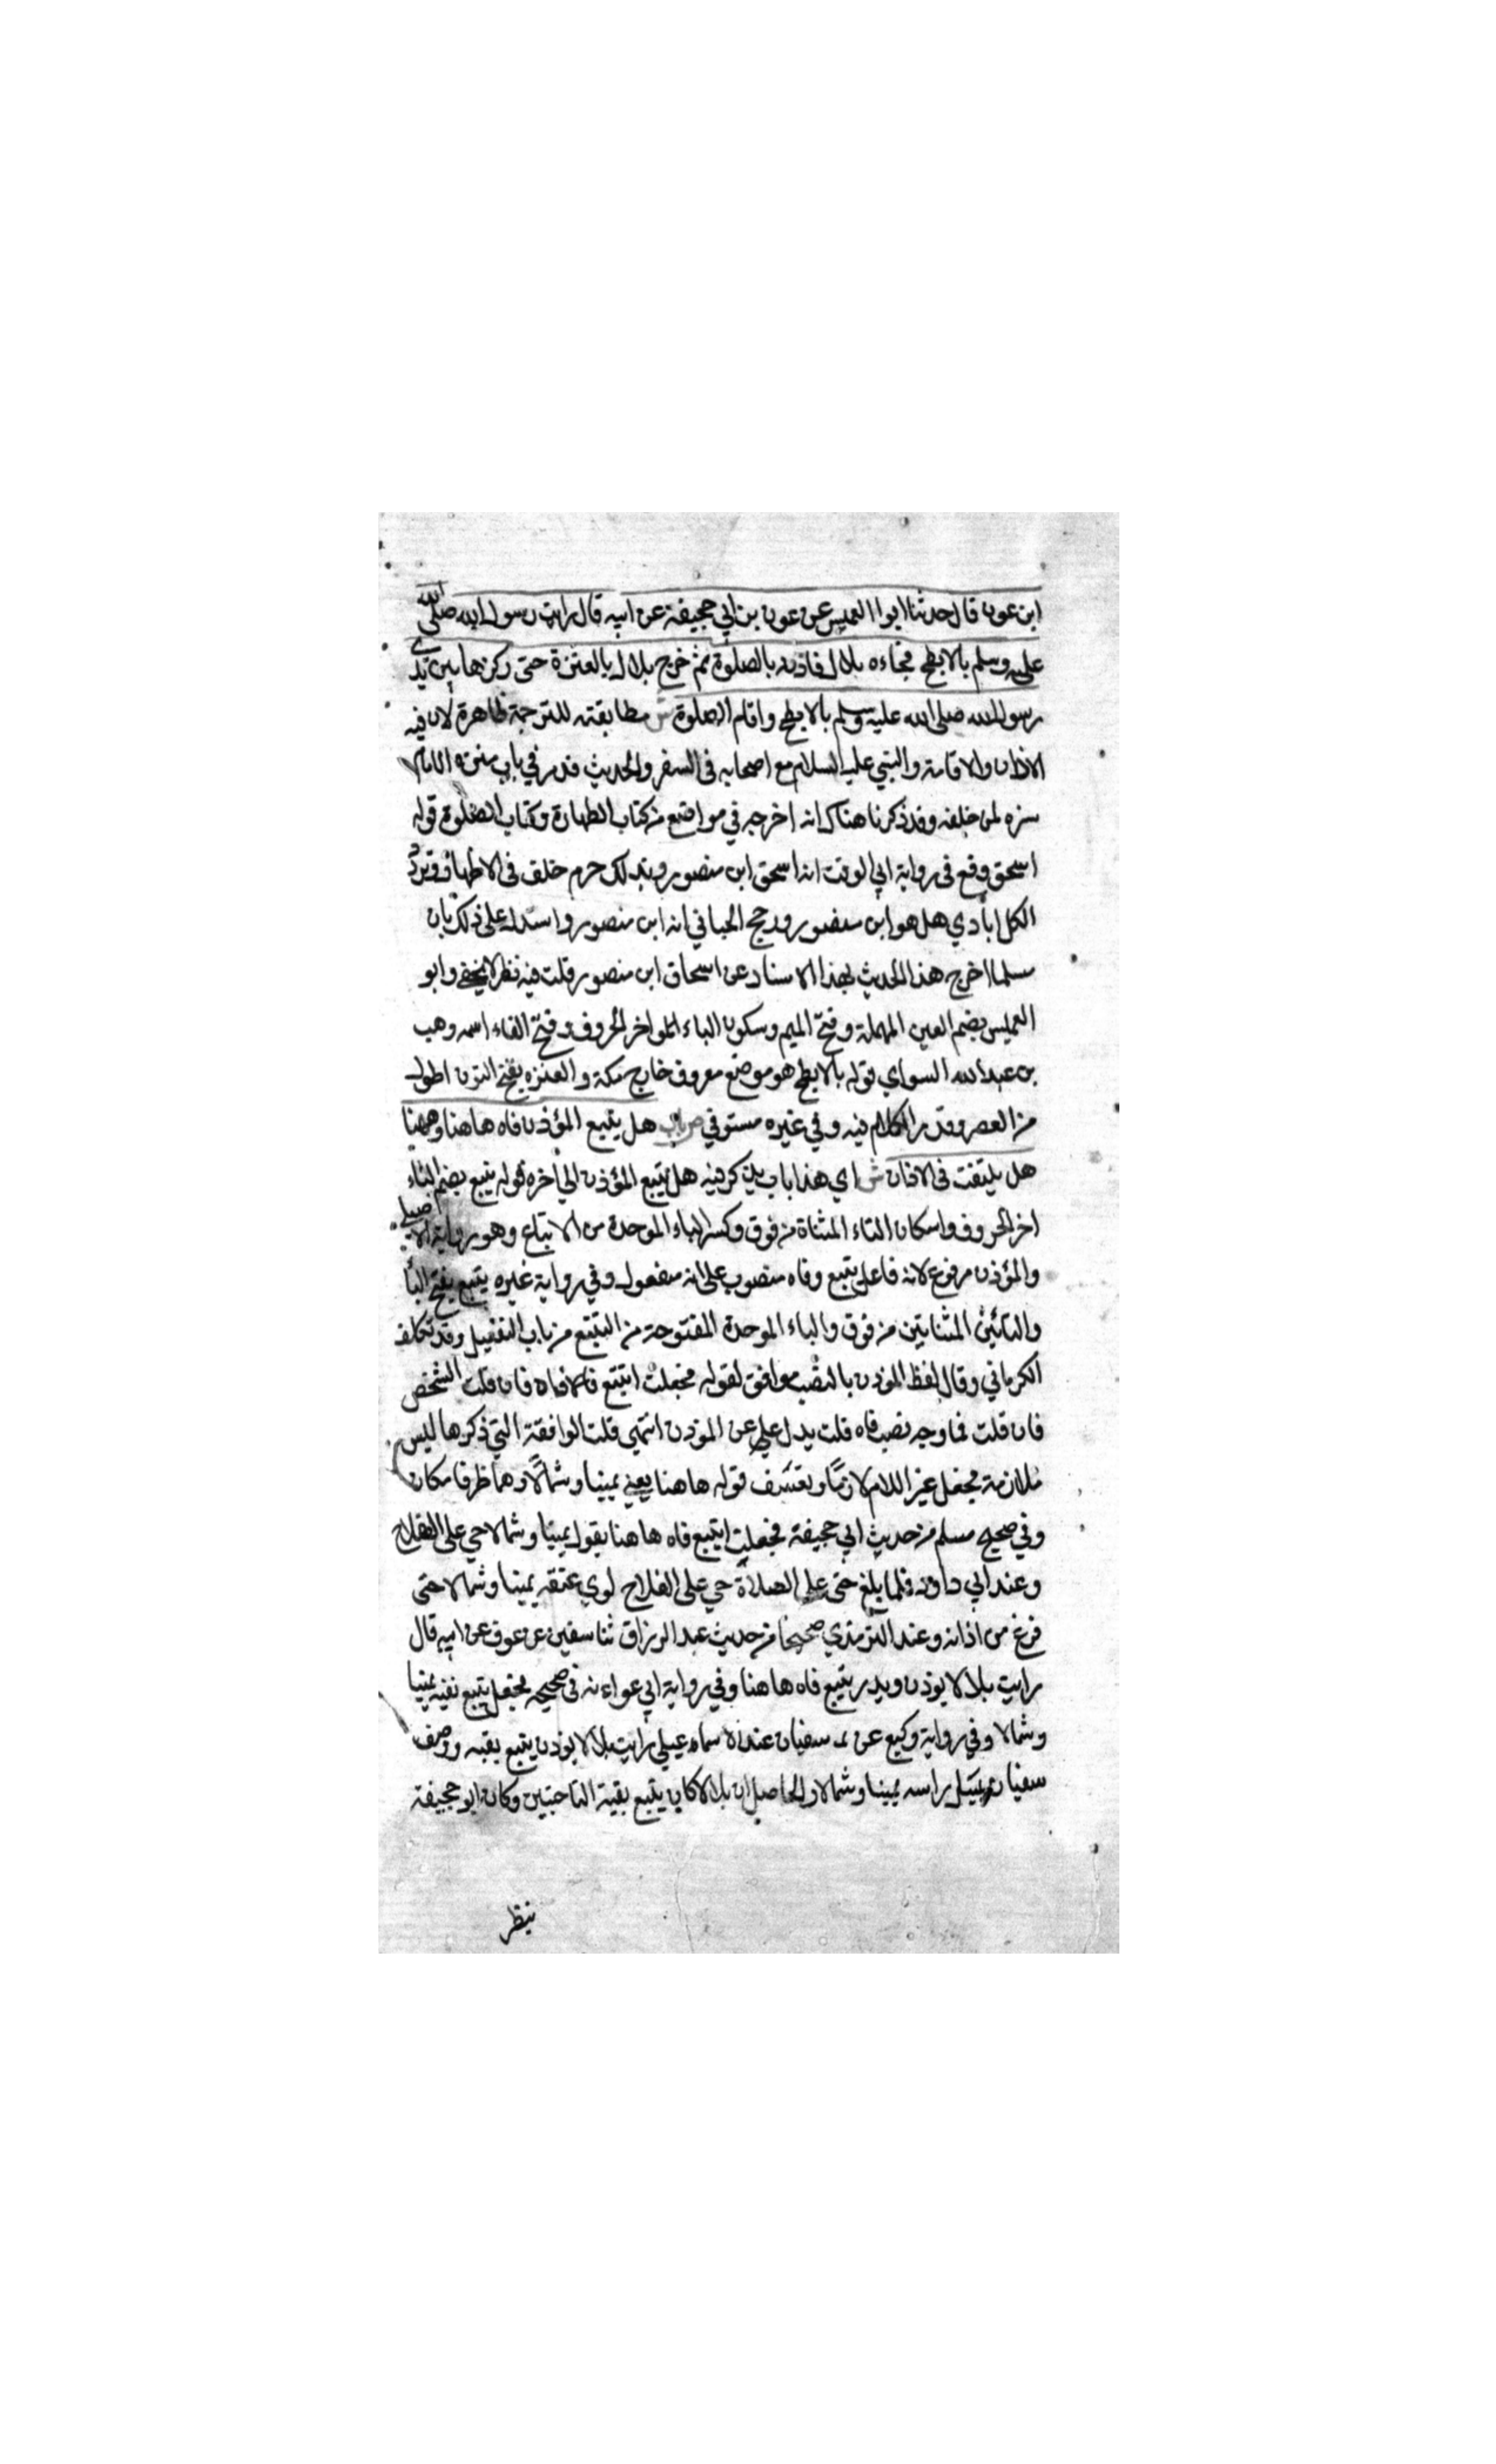 ابن عون قال حدثنا ابوا العميس عن عون بن ابي جحيفة عن ابيه قال رايت رسول الله صلى الله
عليه وسلم بالابطح فجاءه بلال فاذنه بالصلوة ثم خرج بلال بالعنزة حتى ركزها بين يدي
رسول الله صلى الله عليه وسلم بالابطح واقام الصلوة ش مطابقته للترجمة ظاهرة لان فيه
الاذان والاقامة والنبي عليه السلام مع اصحابه في السفر والحديث قد مر في باب سترة الامام
سره لمن خلفه وقد ذكرنا هناك انه اخرجه في مواضع من كتاب الطهارة وكتاب الصلوة قوله
اسحق وقع في رواية ابي الوقت انه اسحق ابن منصور وبذلك جزم خلف في الاطراف وتردد
الكلاباذي هل هو ابن منصور ورجح الجياني انه ابن منصور واستدل على ذلك بان
مسلما اخرج هذا الحديث بهذا الاسناد عن اسحاق ابن منصور قلت فيه نظر لا يخفى وابو
العميس بضم العين المهملة وفتح الميم وسكون الباء اخر الحروف وفتح الفاء اسمه وهب
بن عبد الله السواي قوله بالابطح هو موضع معروف خارج مكة والعنزه بفتح النون اطول
من العصر وقد مر الكلام فيه وفي غيره مستوفي ص باب هل يتبع المؤذن فاه هاهنا وههنا
هل يلتفت في الاذان ش اي هذا باب يذكر فيه هل يتبع المؤذن الي اخره قوله يتبع بضم الياء
اخر الحروف واسكان التاء المثناة من فوق وكسر الباء الموحدة من الاتباع وهو رواية الاصيلي
والمؤذن مرفوع لانه فاعل يتبع وفاه منصوب على انه مفعول وفي رواية غيره يتبع بفتح اليا
والتائين المثناتين من فوق والباء الموحدة المفتوحة من التتبع من باب التفعيل وقد تكلف
الكرماني وقال لفظ الموذن بالنصب موافق لقوله فجعلت اتتبع فاه فان قلت الشخص
فان قلت فما وجه نصب فاه قلت بدل عن الموذن انتهى قلت الوافقة التي ذكرها ليس
ملازمة فجعل غير اللازم لازمًا وتعسف قوله هاهنا يعني يمينا وشمالًا وهما ظرفا مكان
وفي صحيح مسلم من حديث ابي جحيفة فجعلت اتتبع فاه هاهنا يقول يمينا وشمالا حي على الفلاح
وعند ابي داود فلما بلغ حى على الصلاة حي على الفلاح لوي عنقه يمينا وشمالا حتى
فرغ من اذانه وعند الترمذي صحيحا من حديث عبد الرزاق ثنا سفين عن عوف عن ابيه قال
رايت بلالا يوذن ويدر يتبع فاه هاهنا وفي رواية ابي عواءنه في صحيحه فجعل يتبع بفيه يمينا
وشمالا وفي رواية وكيع عن سفيان عند الاسماعيلي رايت بلالا يوذن يتبع بفيه ووصف
سفيان يميل راسه يمينا وشمالا والحاصل ان بلالا كان يتبع بفية الناحيتين وكان ابو جحيفة
ينظر